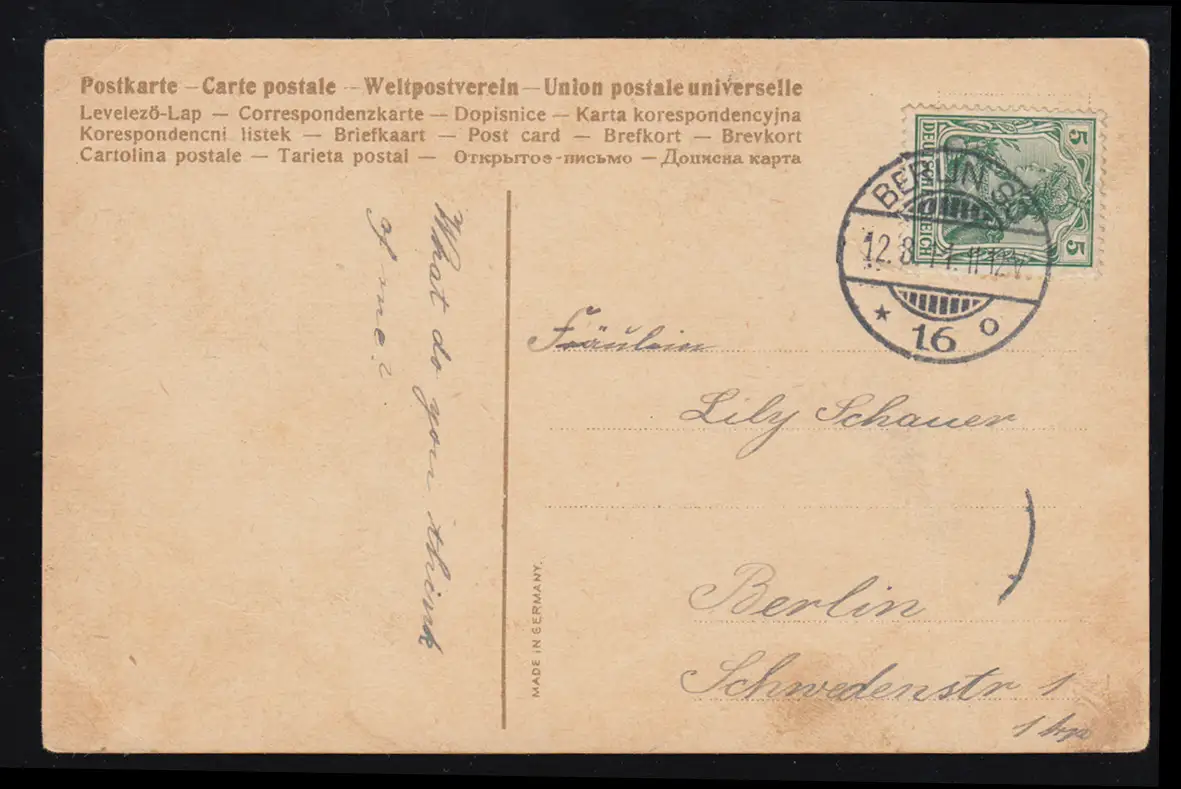 Postkarte – Carte postale – Weltpostverein – Union postale universelle
Levelező-Lap — Correspondenzkarte — Dopisnice — Karta korespondencyjna
Korespondencni listek — Briefkaart — Post card — Brefkort — Brevkort
Cartolina postale — Tarjeta postal — Открытое-письмо — Дописна карта
DEUTSCHES REICH
5
5
BERLIN
12. 8. 11-12V.
* 16 o
What do you think
of me?
Fräulein
Lily Schauer
Berlin
Schwedenstr 1
MADE IN GERMANY.